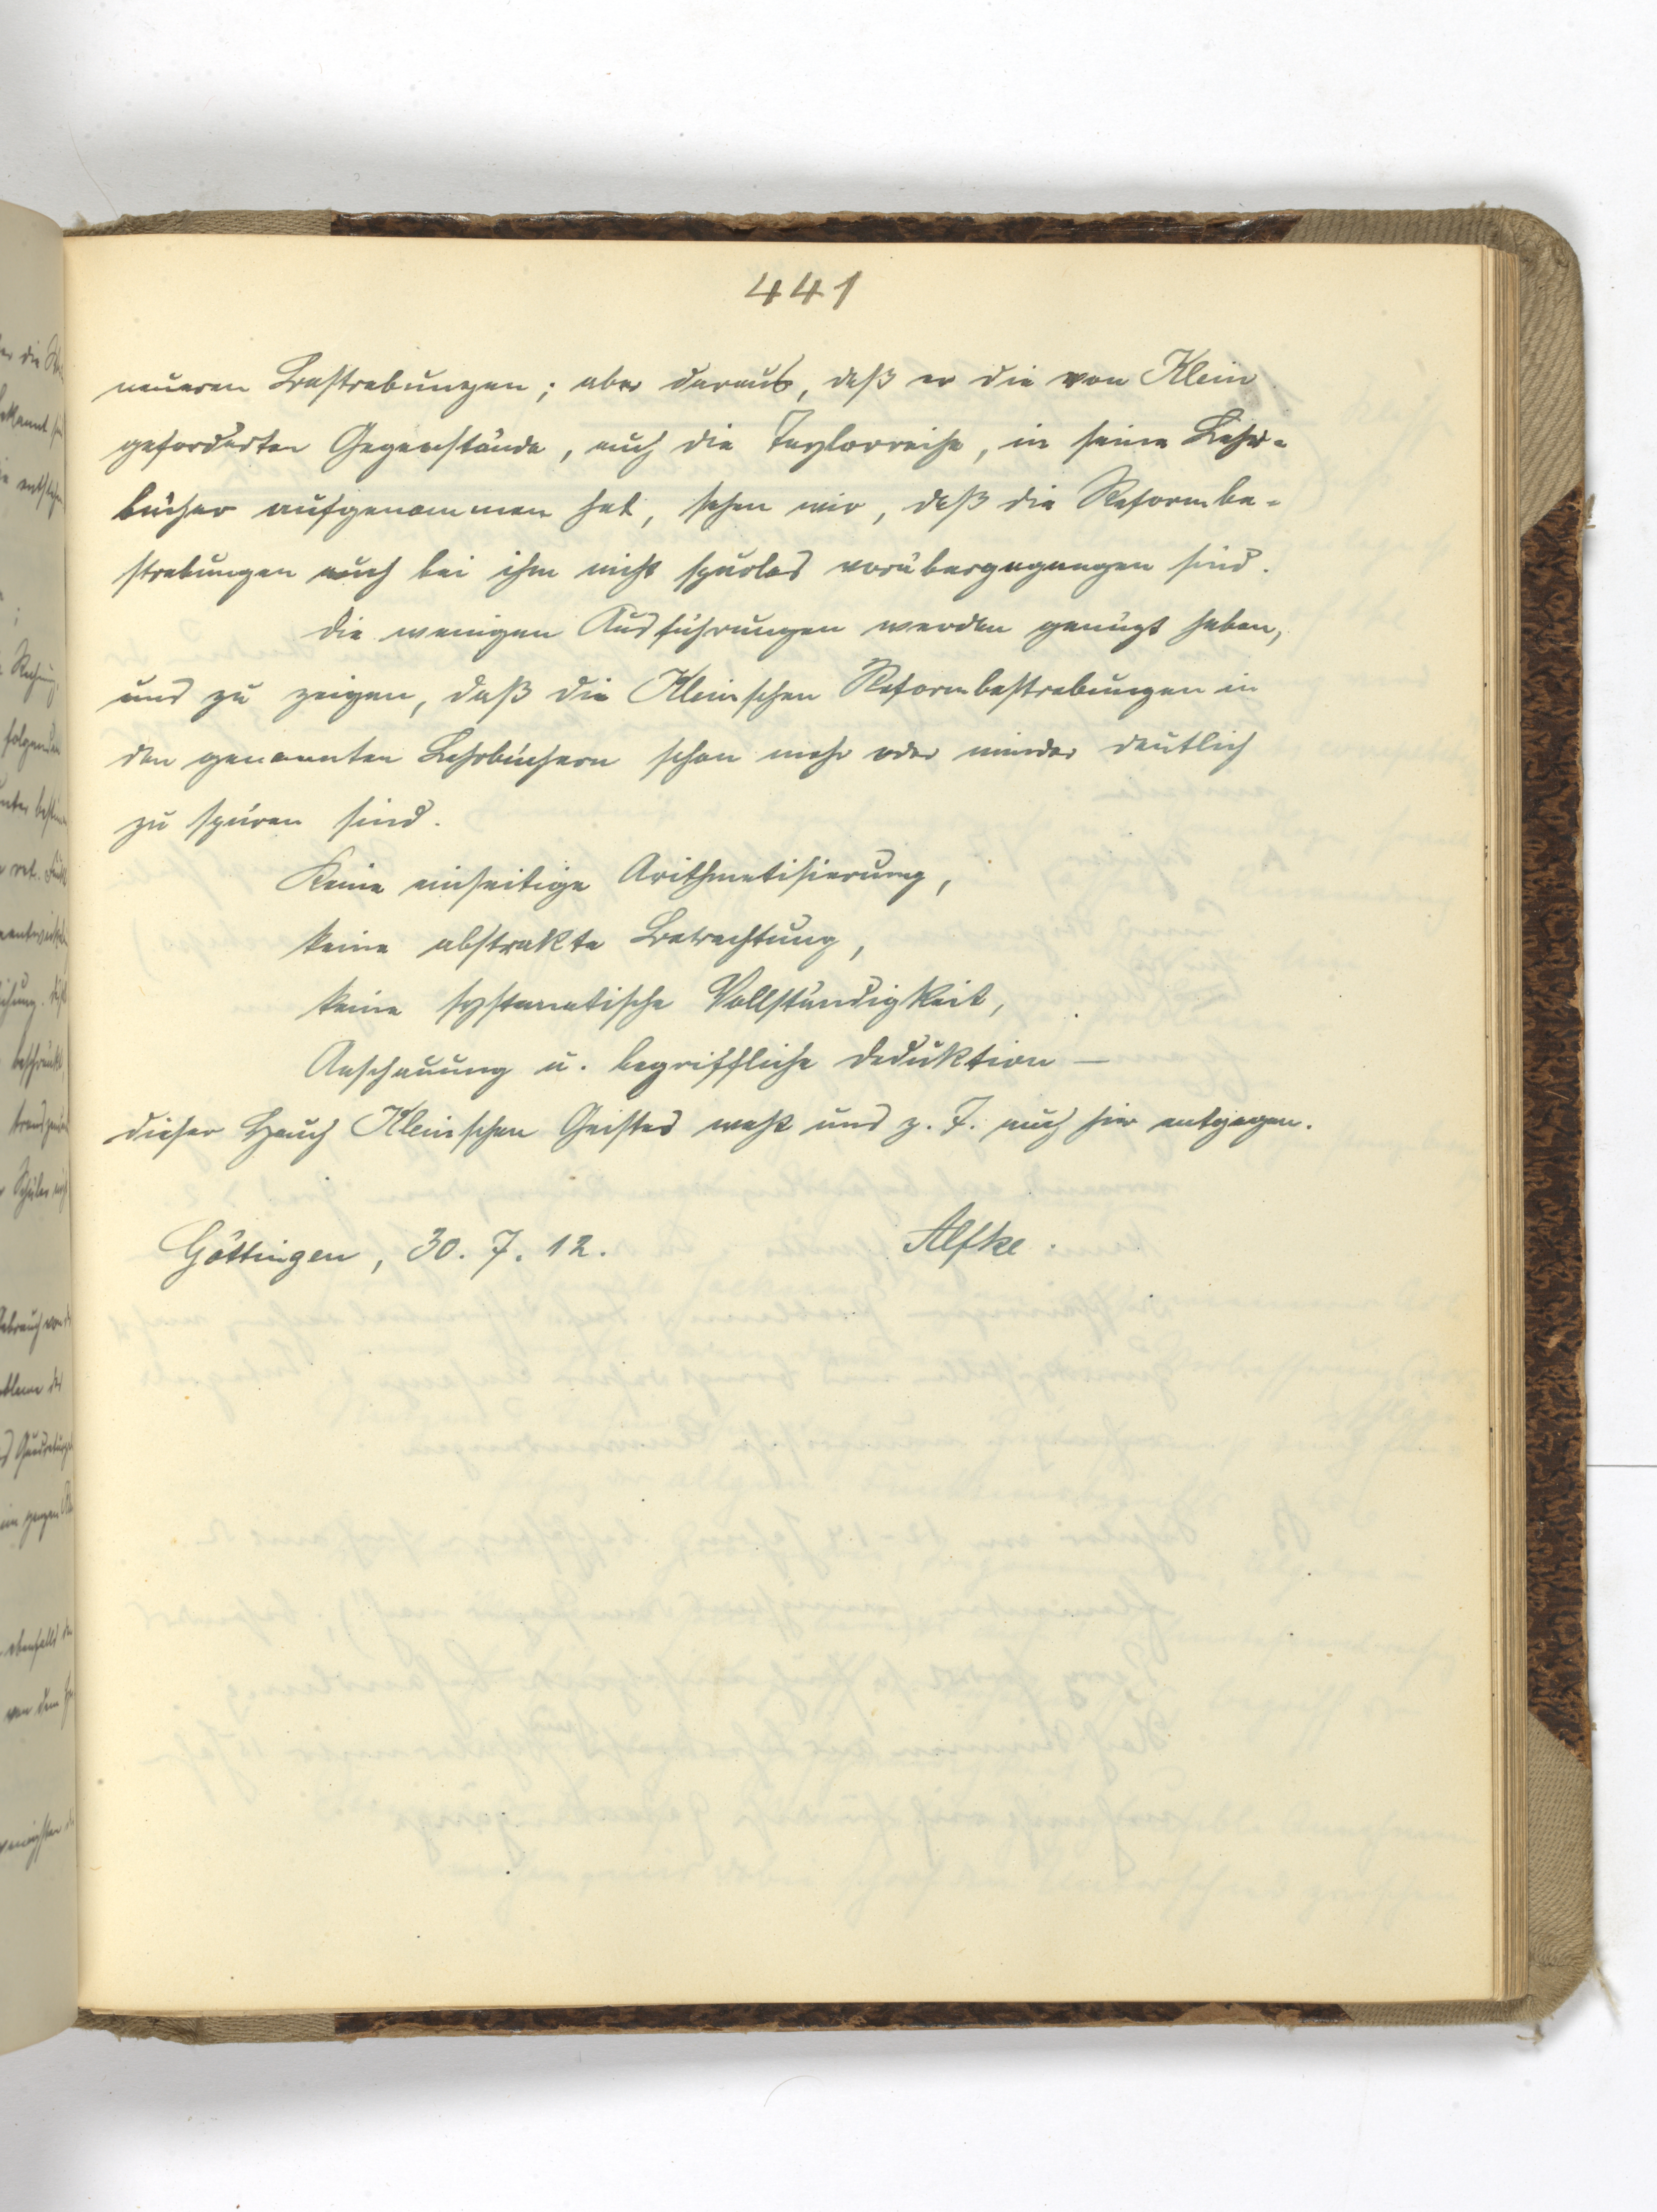 441
neueren Bestrebungen; aber daraus, daß er die von Klein
geforderten Gegenstände, auch die Taylorreihe, in seine Lehr-
bücher aufgenommen hat, sehen wir, daß die Reformbe-
strebungen auch bei ihm nicht spurlos vorübergegangen sind.
Die wenigen Ausführungen werden genügt haben,
uns zu zeigen, daß die Kleinschen Reformbestrebungen in
den genannten Lehrbüchern schon mehr oder minder deutlich
zu spüren sind.
Keine einseitige Arithmetisierung,
keine abstrakte Betrachtung,
keine systematische Vollständigkeit,
Anschauung u. begriffliche Deduktion —
dieser Hauch Kleinschen Geistes weht uns z. T. auch hier entgegen.
Göttingen, 30. 7. 12. Alfke.